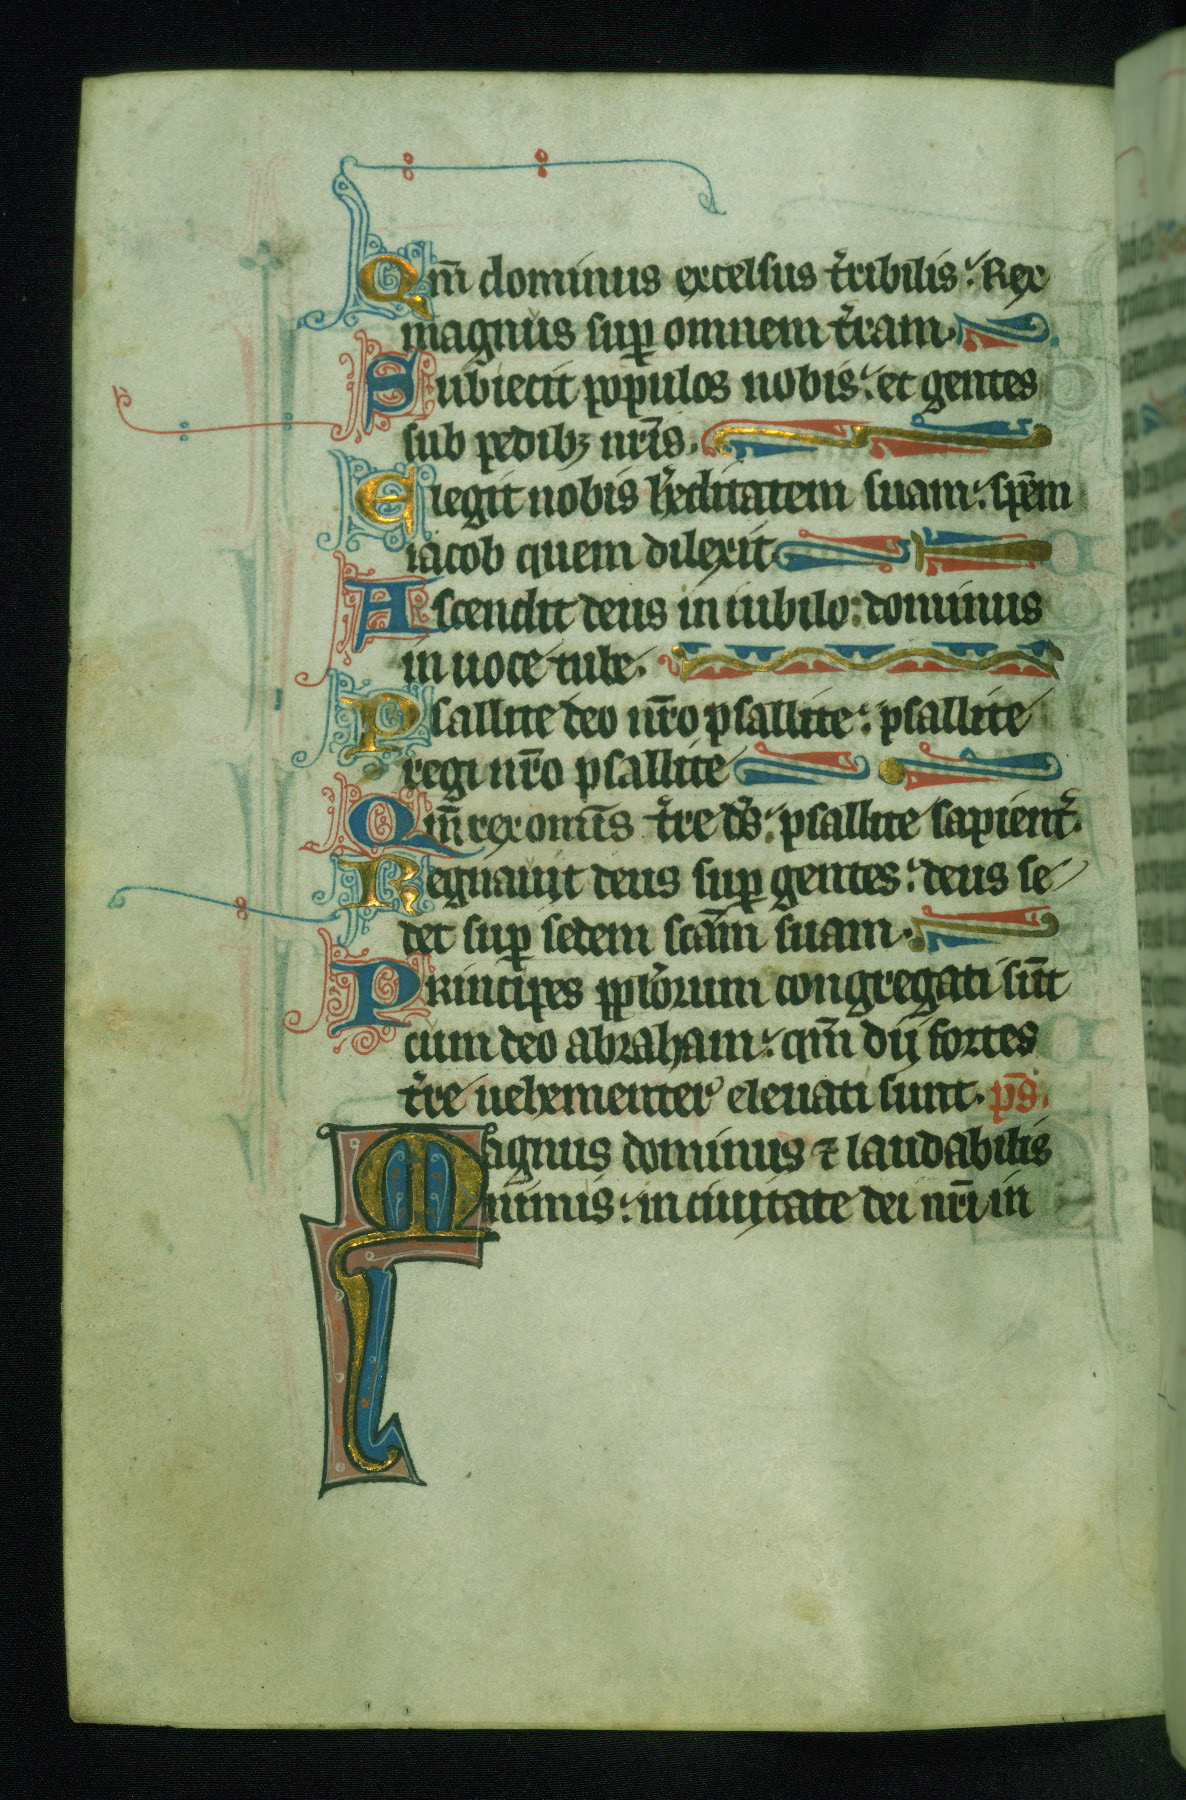 Qm̄ dominus excelsus t̉ribilis: Rex
magnus suꝑ omnem t̉ram.
Subiecit populos nobis: et gentes
sub pedibꝫ nr̄is.
Elegit nobis h̉editatem suam: spēm
iacob quem dilexit
Ascendit deus in iubilo: dominus
in uoce tube.
Psallite deo nr̄o psallite: psallite
regi nr̄o psallite
Qm̄ rex omīs t̉re ds̄: psallite sapient̉.
Regnauit deus suꝑ gentes: deus se
det suꝑ sedem scām suam.
Principes pplỏrum congregati sūt
cum deo abraham: qm̄ dij fortes
t̉re uehementer eleuati sunt. p̄s.
Magnus dominus ⁊ laudabilis
nimis: in ciuitate dei nr̄i in